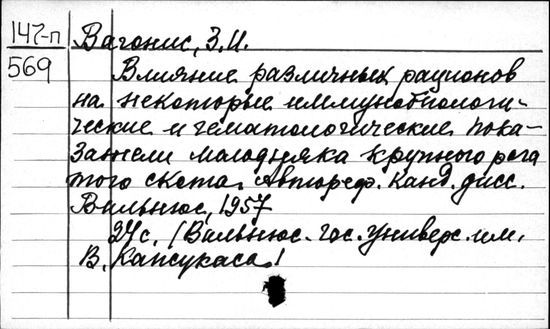 147-п
569
Вагонис, З.И.
Влияние различных рационов
на некоторые иммунобиологи-
ческие и гематологические пока-
затели молодняка крупного рога
того скота. Автореф. канд. дисс.
Вильнюс, 1957
24 с. (Вильнюс. гос. универс. им.
В. Капсукаса)